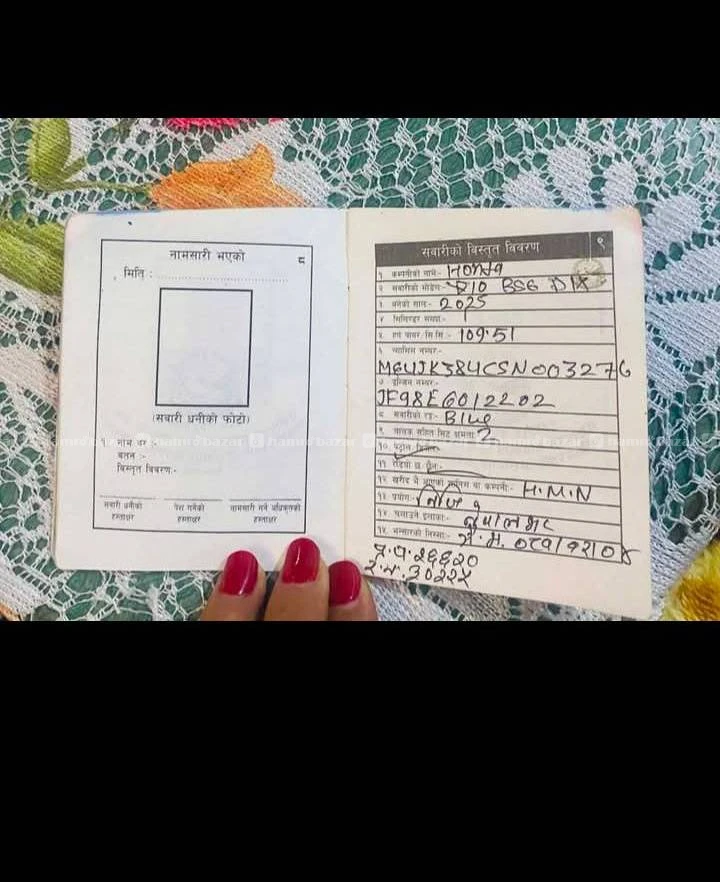 नामसारी भएको
८
मिति :
(सवारी धनीको फोटो)
१. नाम थर :-
वतन :-
विस्तृत विवरण:-
सवारी धनीको
हस्ताक्षर
पेश गर्नेको
हस्ताक्षर
नामसारी गर्ने अधिकृतको
हस्ताक्षर
सवारीको विस्तृत विवरण
९
१ कम्पनीको नाम:- Honda
२ सवारीको मोडेल:- BS6 DIX
३ बनेको साल:- 2025
४ सिलिण्डर संख्या:- 1
५ हर्ष पावर सि.सि.:- 109.51
६ च्यासिस नम्बर:-
ME4JK384CSN003276
७ इन्जिन नम्बर:-
JF98EG012202
८ सवारीको रङ:- Blue
९ चालक सहित सिट क्षमता: 2
१० पेट्रोल, डिजेल:-
११ रेडियो छ छैन:-
१२ खरीद भै आएको व्यक्ति वा कम्पनी:- H.M.N
१३ प्रयोग:- निजि
१४ चलाउने इलाका:- नेपालभर
१५ भन्सारको निस्सा:-
प्र.प. २६६२०
hamrobazar hamrobazar hamrobazar hamrobazar